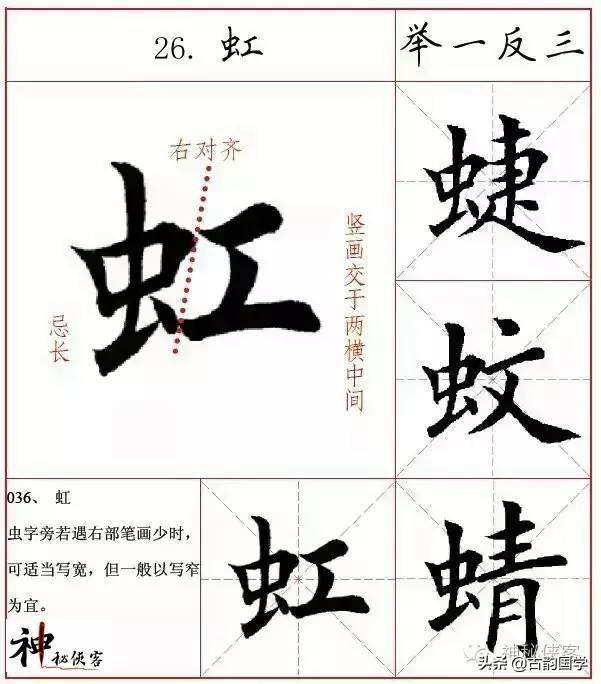 26. 虹
举一反三
右对齐
虹
忌长
竖画交于两横中间
䗌
蚊
036、 虹
虫字旁若遇右部笔画少时，
可适当写宽，但一般以写窄
为宜。
神秘侠客
虹
蜻
神秘侠客
头条 @古韵国学